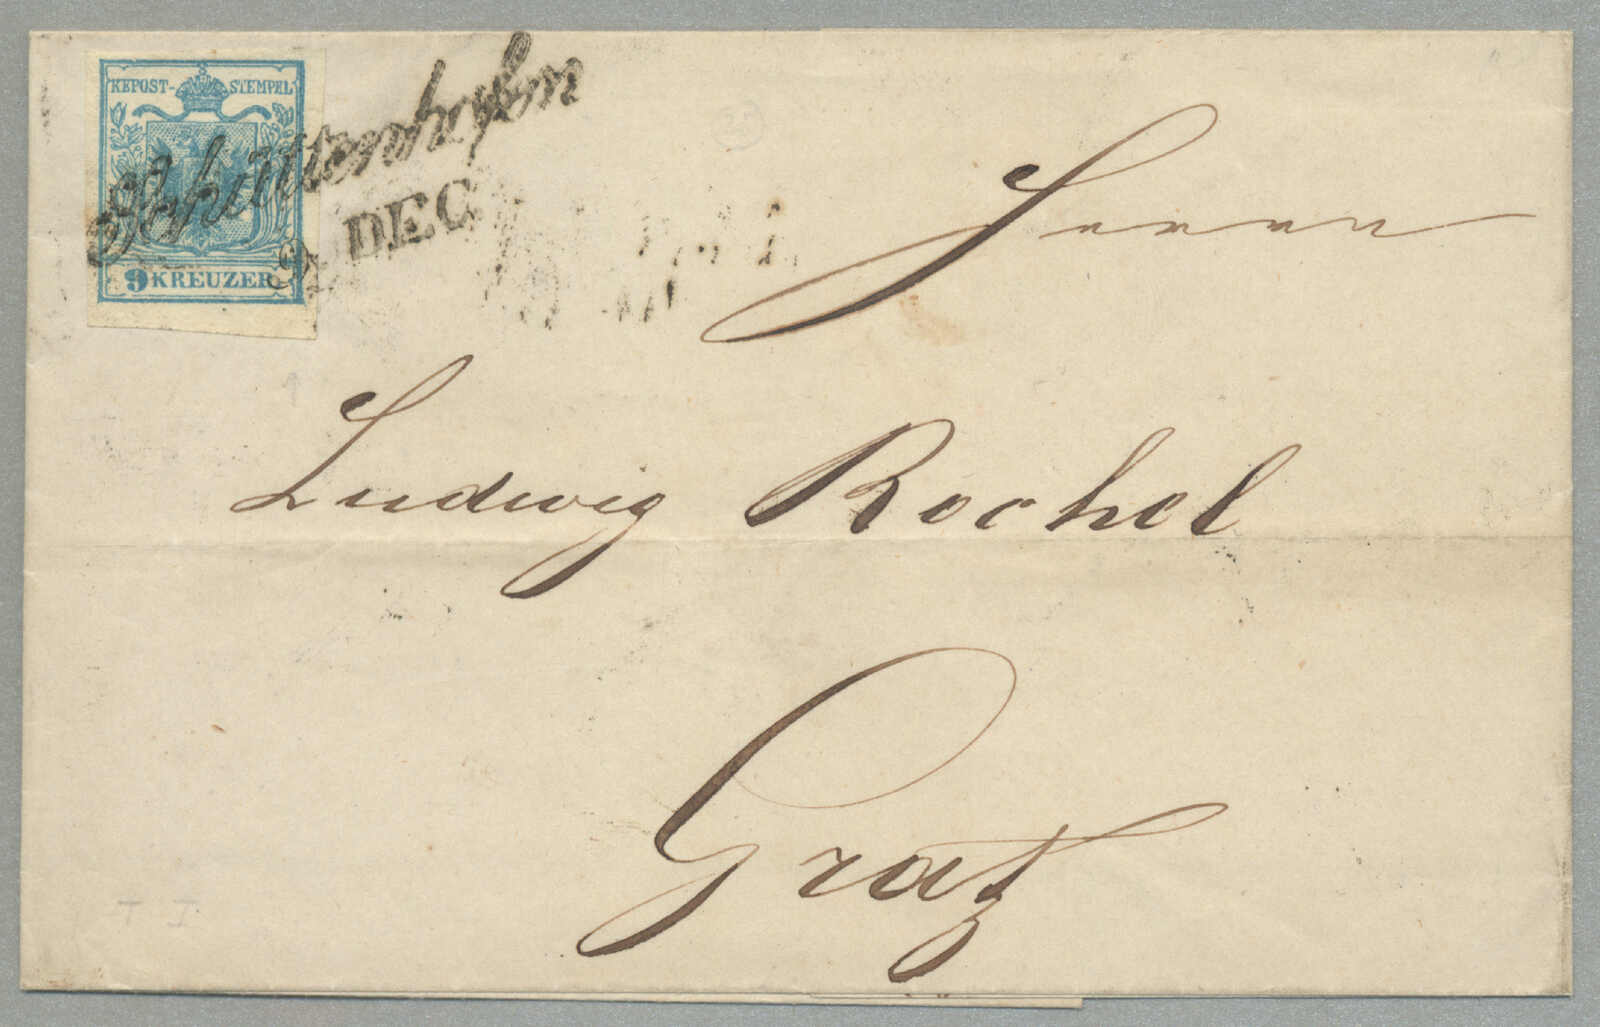 KKPOST-STEMPEL
9 KREUZER
Schüttenhofen
9. DEC
Herrn
Ludwig Rochel
Gratz